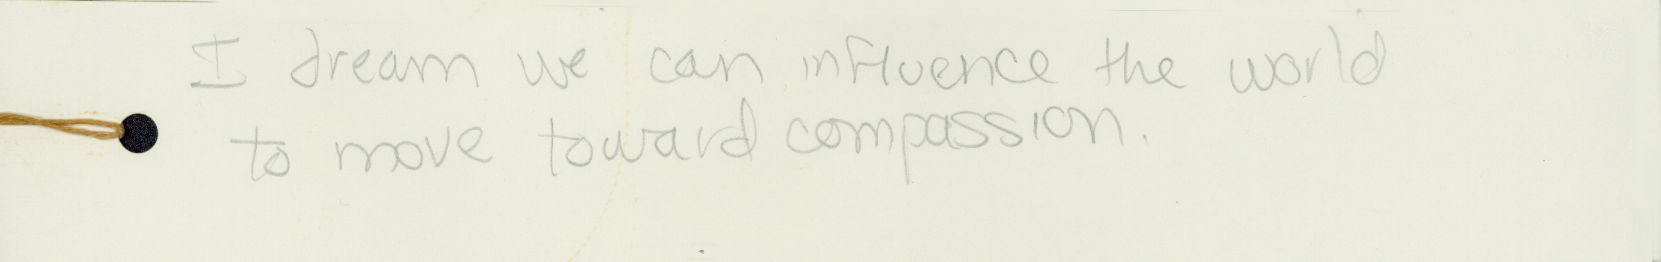 I dream we can influence the world
to move toward compassion.